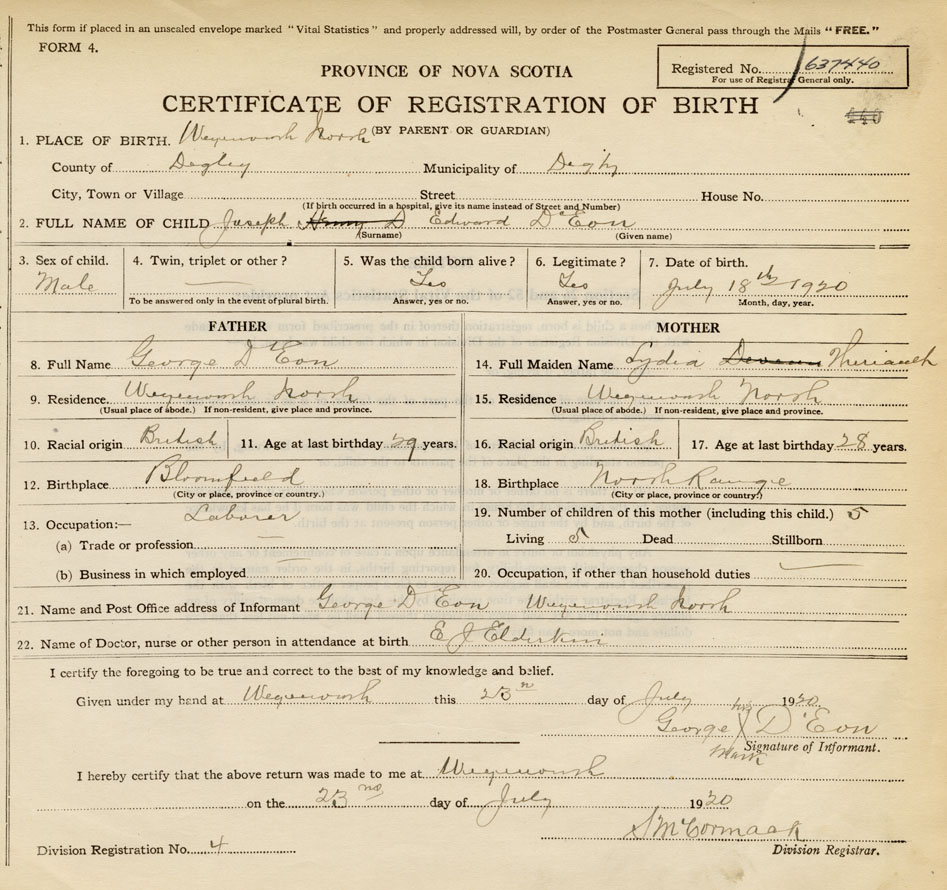 This form if placed in an unsealed envelope marked "Vital Statistics" and properly addressed will, by order of the Postmaster General pass through the Mails "FREE."
FORM 4.
Registered No. 637440
For use of Registrar General only.
PROVINCE OF NOVA SCOTIA
CERTIFICATE OF REGISTRATION OF BIRTH
(BY PARENT OR GUARDIAN)
1. PLACE OF BIRTH. Weymouth North
County of Digby Municipality of Digby
City, Town or Village Street House No.
(If birth occurred in a hospital, give its name instead of Street and Number)
2. FULL NAME OF CHILD Joseph Henry D Edward D'Eon
(Surname) (Given name)
3. Sex of child. 4. Twin, triplet or other? 5. Was the child born alive? 6. Legitimate? 7. Date of birth.
Male — Yes Yes July 18th 1920
To be answered only in the event of plural birth. Answer, yes or no. Answer, yes or no. Month, day, year.
FATHER MOTHER
8. Full Name George D'Eon 14. Full Maiden Name Lydia Theriault
9. Residence. Weymouth North 15. Residence Weymouth North
(Usual place of abode.) If non-resident, give place and province. (Usual place of abode.) If non-resident, give place and province.
10. Racial origin British 11. Age at last birthday 29 years. 16. Racial origin British 17. Age at last birthday 28 years.
12. Birthplace Bloomfield 18. Birthplace North Range
(City or place, province or country.) (City or place, province or country?)
13. Occupation:— Laborer 19. Number of children of this mother (including this child.) 5
(a) Trade or profession — Living 5 Dead Stillborn
(b) Business in which employed 20. Occupation, if other than household duties —
21. Name and Post Office address of Informant George D'Eon Weymouth North
22. Name of Doctor, nurse or other person in attendance at birth E J Elderkin
I certify the foregoing to be true and correct to the best of my knowledge and belief.
Given under my hand at Weymouth this 23 day of July 1920
George his X mark D'Eon
Signature of Informant.
I hereby certify that the above return was made to me at Weymouth
on the 23rd day of July 1920
S McCormack
Division Registration No. 4 Division Registrar.